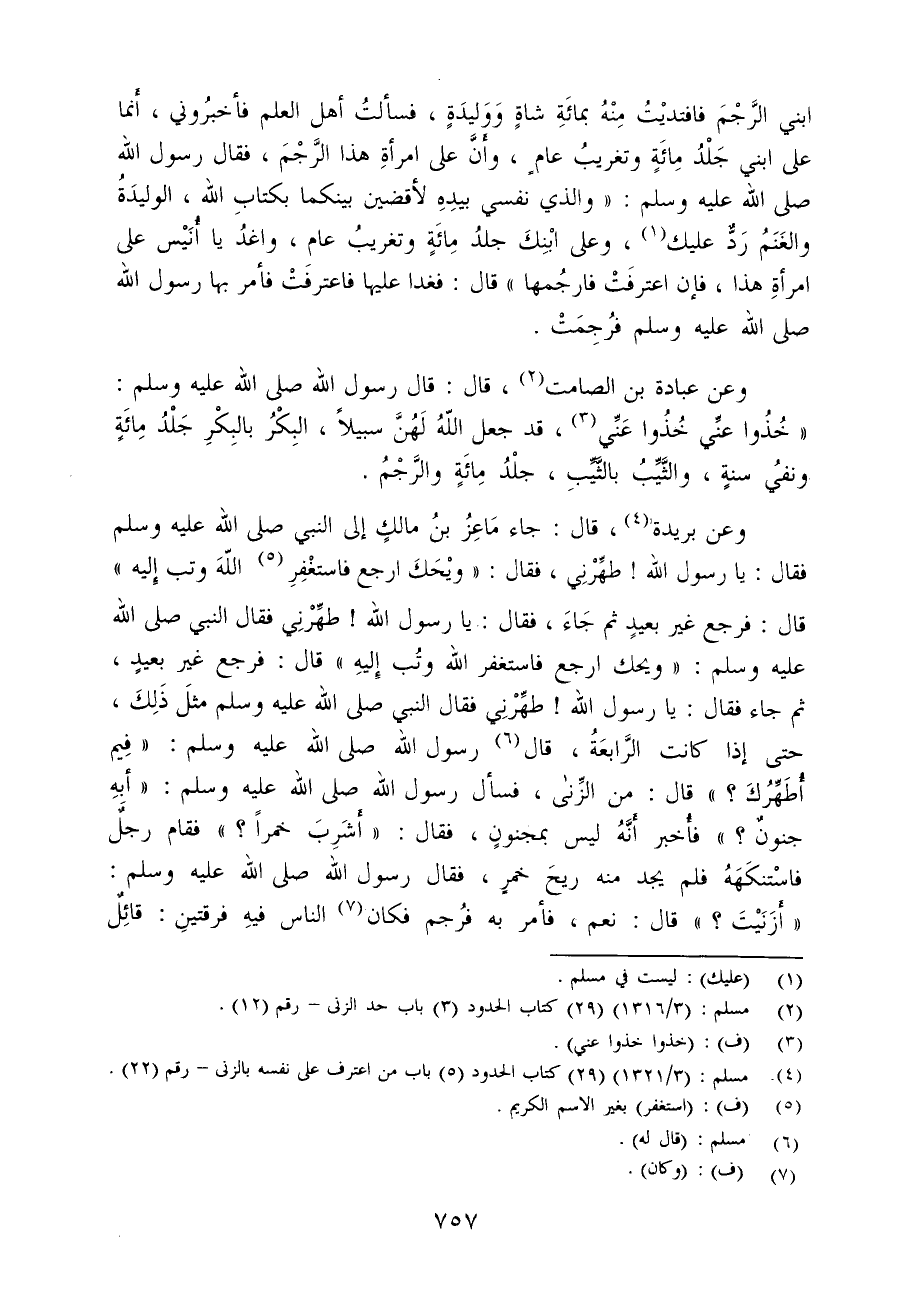 ابني الرَّجْمَ فافتديْتُ مِنْهُ بمائَةِ شاةٍ وَوَليدَةٍ ، فسألتُ أهل العلم فأخبرُوني ، أَنما
على ابني جَلْدُ مِائَةٍ وتغريبُ عام ٍ ، وأَنَّ على امرأةِ هذا الرَّجْمَ ، فقال رسول الله
صلى الله عليه وسلم : « والذي نفسي بيدِهِ لأقضين بينكما بكتابِ الله ، الوليدَةُ
والغَنَمُ رَدٌّ عليك(١) ، وعلى ابْنِكَ جلدُ مِائَةٍ وتغريبُ عام ، واغدُ يا أُنَيْس على
امرأةِ هذا ، فإن اعترفَتْ فارجُمها » قال : فغدا عليها فاعترفَتْ فأمر بها رسول الله
صلى الله عليه وسلم فرُجِمَتْ .
وعن عبادة بن الصامت(٢) ، قال : قال رسول الله صلى الله عليه وسلم :
« خُذُوا عنِّي خُذُوا عَنِّي(٣) ، قد جعل اللّهُ لَهُنَّ سبيلاً ، البِكْرُ بالبِكْرِ جَلْدُ مِائَةٍ
ونفيُ سنةٍ ، والثَّيِّبُ بالثَّيِّبِ ، جلْدُ مِائَةٍ والرَّجْمُ .
وعن بريدة(٤) ، قال : جاء مَاعِزُ بنُ مالكٍ إلى النبي صلى الله عليه وسلم
فقال : يا رسول الله ! طهِّرْنِي ، فقال : « ويْحَكَ ارجع فاستغْفِرِ (٥) اللّهَ وتب إِليه »
قال : فرجع غير بعيدٍ ثم جَاءَ ، فقال : يا رسول الله ! طهِّرْنِي فقال النبي صلى الله
عليه وسلم : « ويحك ارجع فاستغفر الله وتُب إِليهِ » قال : فرجع غير بعيدٍ ،
ثم جاء فقال : يا رسول الله ! طهِّرْنِي فقال النبي صلى الله عليه وسلم مثلَ ذَلِكَ ،
حتى إذا كانت الرَّابعَةُ ، قال(٦) رسول الله صلى الله عليه وسلم : « فِيم
أُطَهِّرُكَ ؟ » قال : من الزِّنىٰ ، فسأل رسول الله صلى الله عليه وسلم : « أَبِهِ
جنونٌ ؟ » فأُخبر أَنَّهُ ليس بمجنونٍ ، فقال : « أَشَرِبَ خمراً ؟ » فقام رجلٌ
فاسْتنكَهَهُ فلم يجد منه ريحَ خمرٍ ، فقال رسول الله صلى الله عليه وسلم :
« أَزَنَيْتَ ؟ » قال : نعم ، فأمر به فرُجم فكان(٧) الناس فيهِ فرقتينِ : قائِلٌ
(١) (عليك) : ليست في مسلم .
(٢) مسلم : (١٣١٦/٣) (٢٩) كتاب الحدود (٣) باب حد الزنى – رقم (١٢) .
(٣) (ف) : (خذوا خذوا عني) .
(٤) مسلم : (١٣٢١/٣) (٢٩) كتاب الحدود (٥) باب من اعترف على نفسه بالزنى – رقم (٢٢) .
(٥) (ف) : (استغفر) بغير الاسم الكريم .
(٦) مسلم : (قال له) .
(٧) (ف) : (وكان) .
٧٥٧